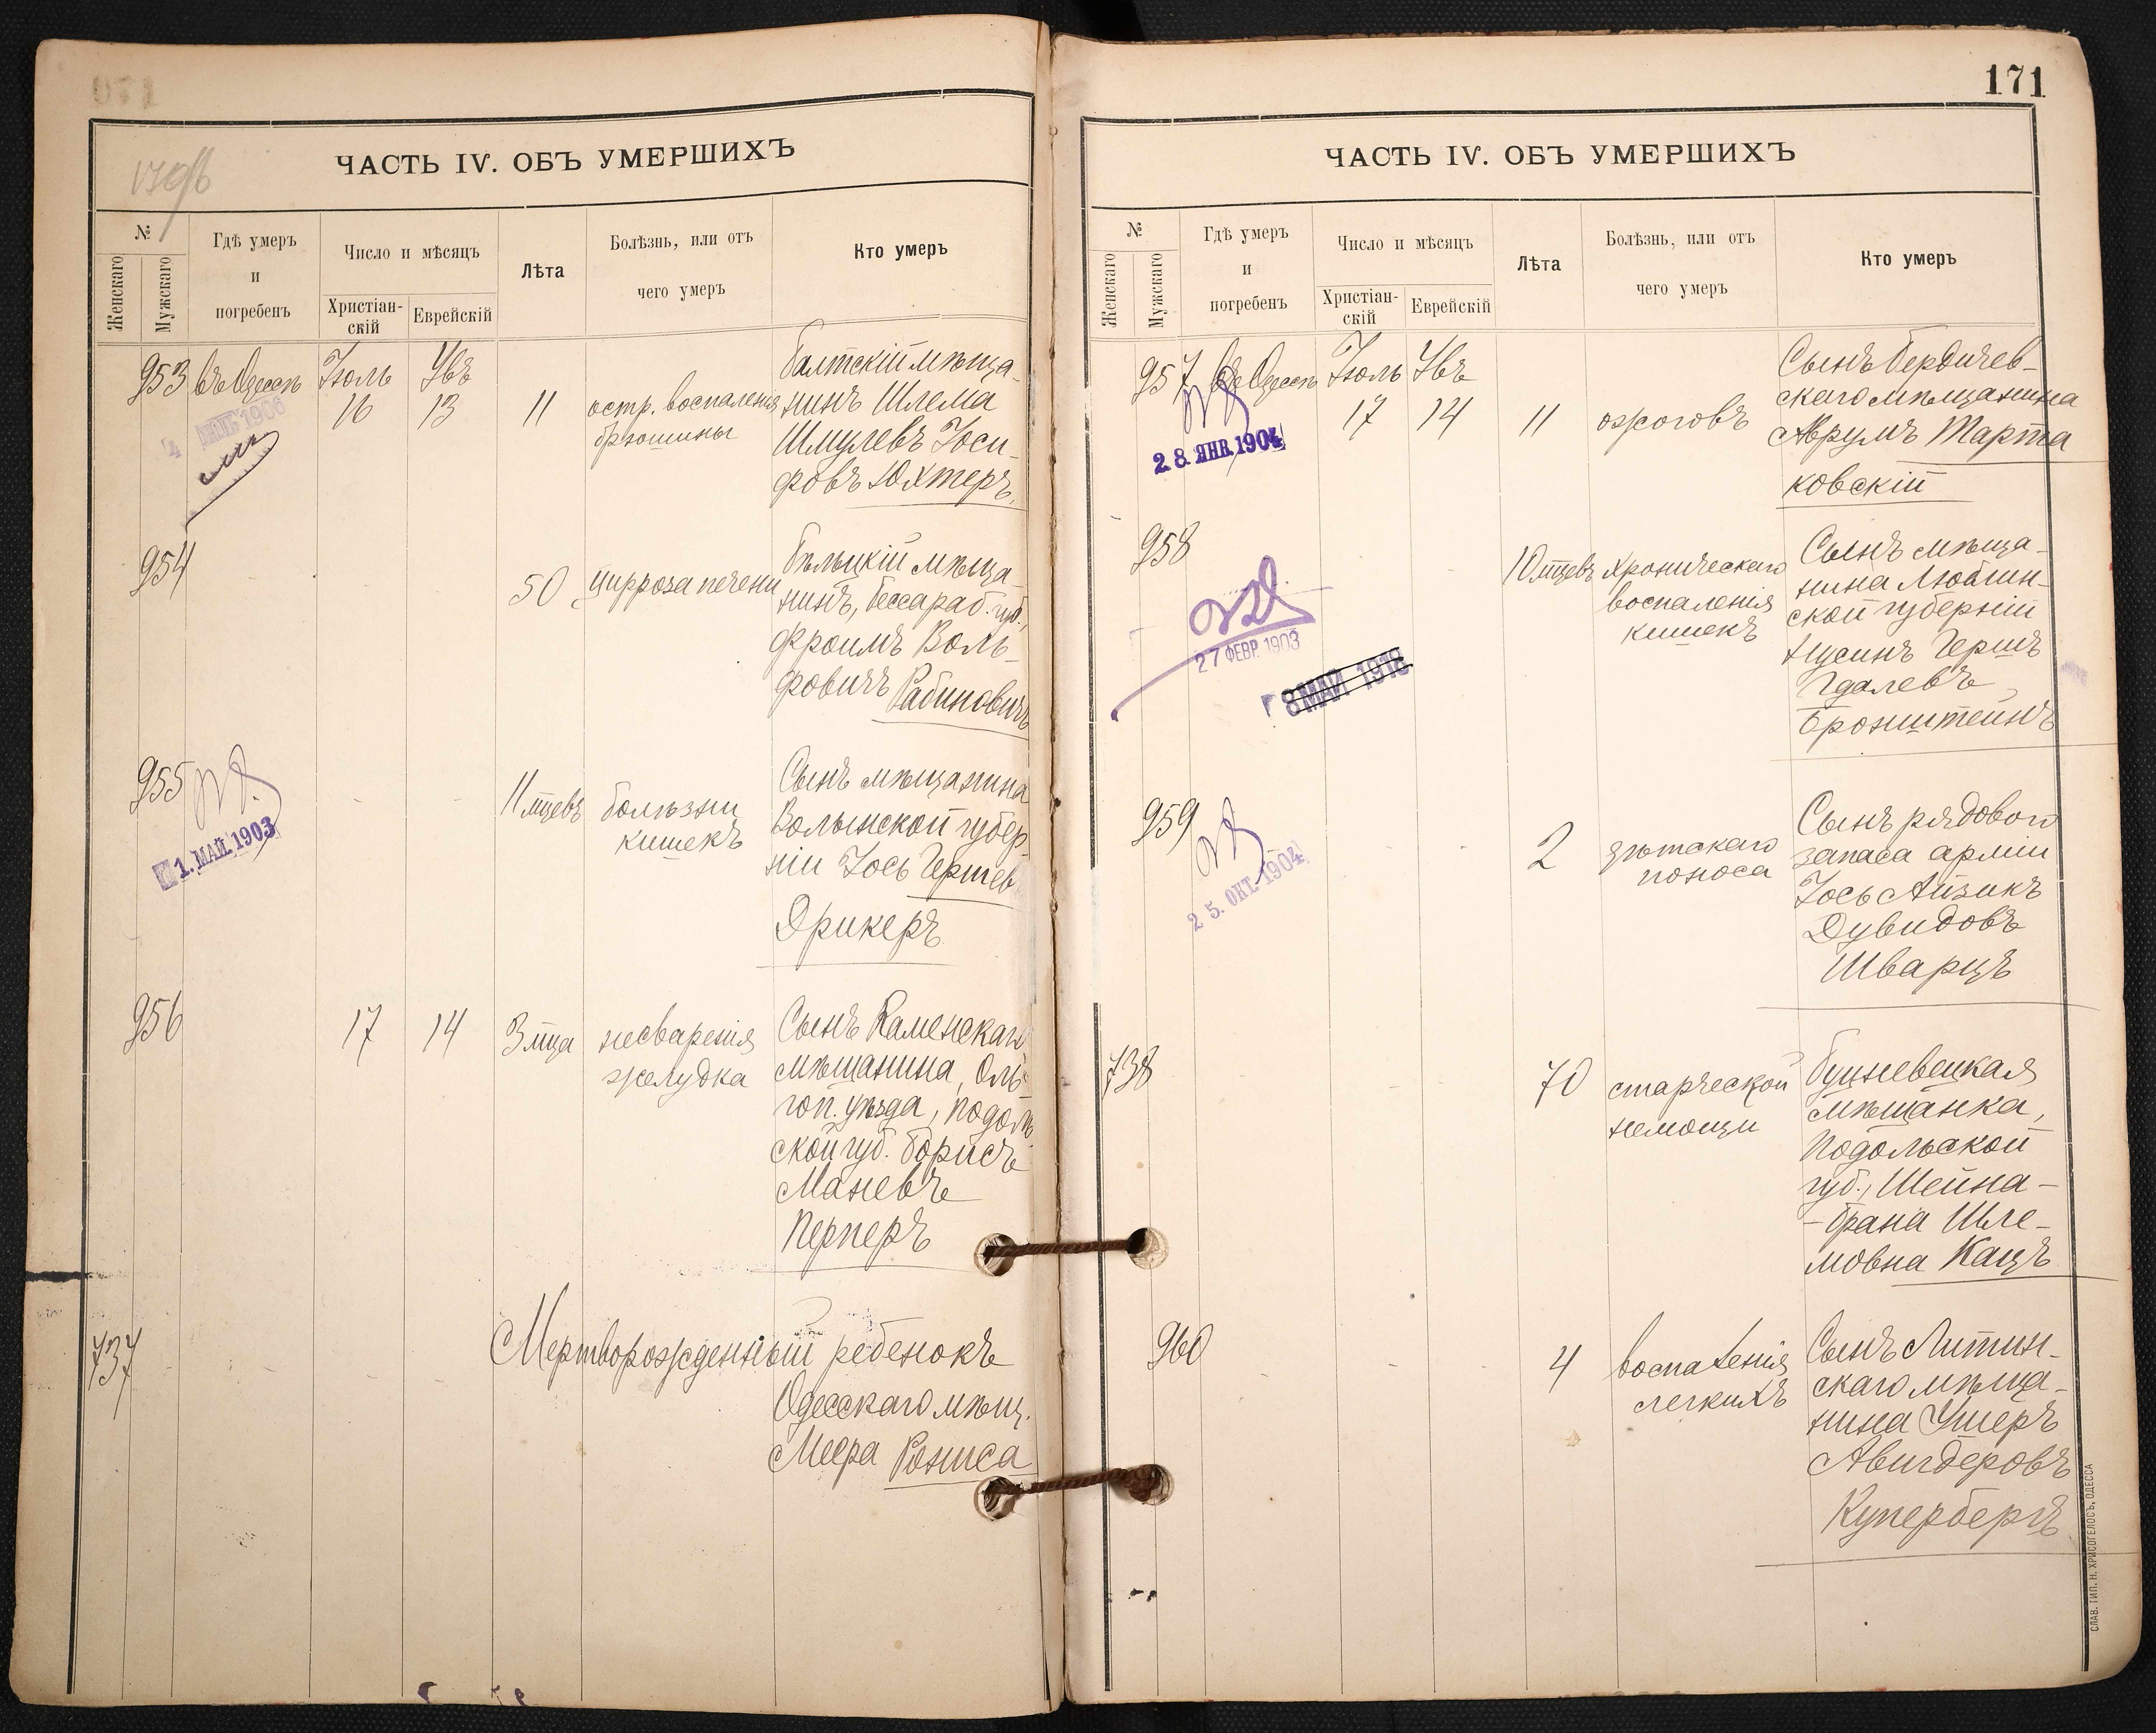 171
170 об
ЧАСТЬ IV. ОБЪ УМЕРШИХЪ
№
Женскаго
Мужскаго
Гдѣ умеръ
и
погребенъ
Число и мѣсяцъ
Христіан-
скій
Еврейскій
Лѣта
Болѣзнь, или отъ
чего умеръ
Кто умеръ
953 въ Одессѣ Іюль Увъ
16 13 11 остр. воспаленія
брюшины
Балтскій мѣща-
нинъ Шлема
Шмулевъ Іоси-
фовъ Юхтеръ.
954
50 цирроза печени
Бѣльцкій мѣща-
нинъ, Бессараб. губ.,
Фроимъ Воль-
фовичъ Рабиновичъ
955
1. МАЙ. 1903
11 мцевъ болѣзни
кишекъ
Сынъ мѣщанина
Волынской губер-
ніи Іось Гершев
Дрикеръ
956 17 14 3 мца несваренія
желудка
Сынъ Каменскаго
мѣщанина, Оль-
гоп. уѣзда, Подоль-
ской губ. Борисъ
Маневъ
Перперъ
737
Мертворожденный ребенокъ
Одесскаго мѣщ.
Меера Рониса
ЧАСТЬ IV. ОБЪ УМЕРШИХЪ
№
Женскаго
Мужскаго
Гдѣ умеръ
и
погребенъ
Число и мѣсяцъ
Христіан-
скій
Еврейскій
Лѣта
Болѣзнь, или отъ
чего умеръ
Кто умеръ
957 въ Одессѣ Іюль Увъ
17 14 11 ожоговъ
28. ЯНВ. 1904
Сынъ Бердичев-
скаго мѣщанина
Аврумъ Марта
ковскій
958
27 ФЕВР. 1903
8 МАЙ 1918
10 мцевъ хроническаго
воспаленія
кишекъ
Сынъ мѣща-
нина Люблин-
ской губерніи
Нусинъ Гершъ
Гдалевъ
Бронштейнъ
959
25. ОКТ. 1904
2 дѣтскаго
поноса
Сынъ рядового
запаса арміи
Іось Айзикъ
Дувидовъ
Шварцъ
738
70 старческой
немощи
Буцневецкая
мѣщанка,
Подольской
губ., Шейна-
-Брана Шле-
мовна Кацъ
960
4 воспаленія
легкихъ
Сынъ Литин-
скаго мѣща-
нина Ушеръ
Авигдеровъ
Купербергъ
СЛАВ. ТИП. Н. ХРИСОГЕЛОСЪ, ОДЕССА